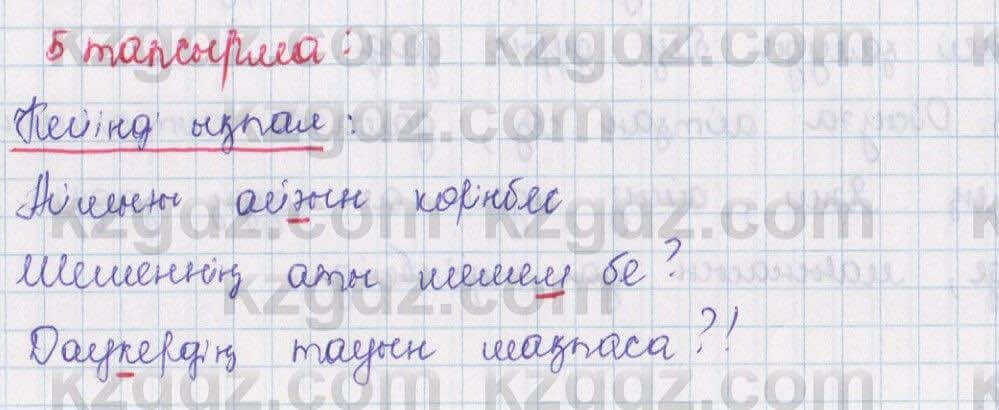 5 тапсырма:
Кейінді ықпал:
айзын көрінбес
Шешеннің аты шешем бе?
Даукердің тауын шақпаса?!
kzgdz.com